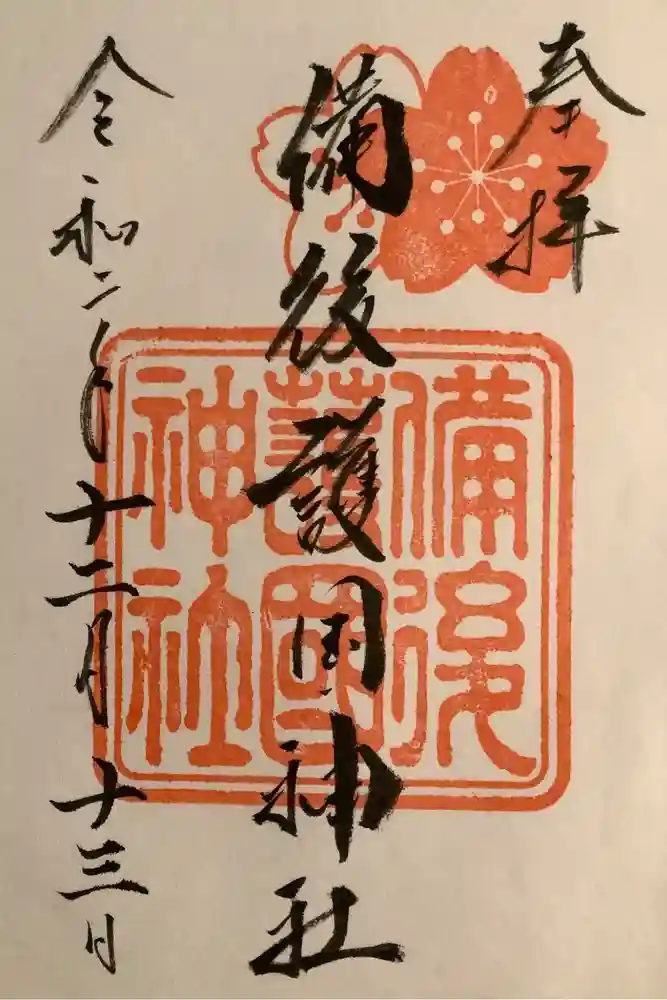 奉拝
備後護国神社
令和二年十二月十三日
備後
護國
神社